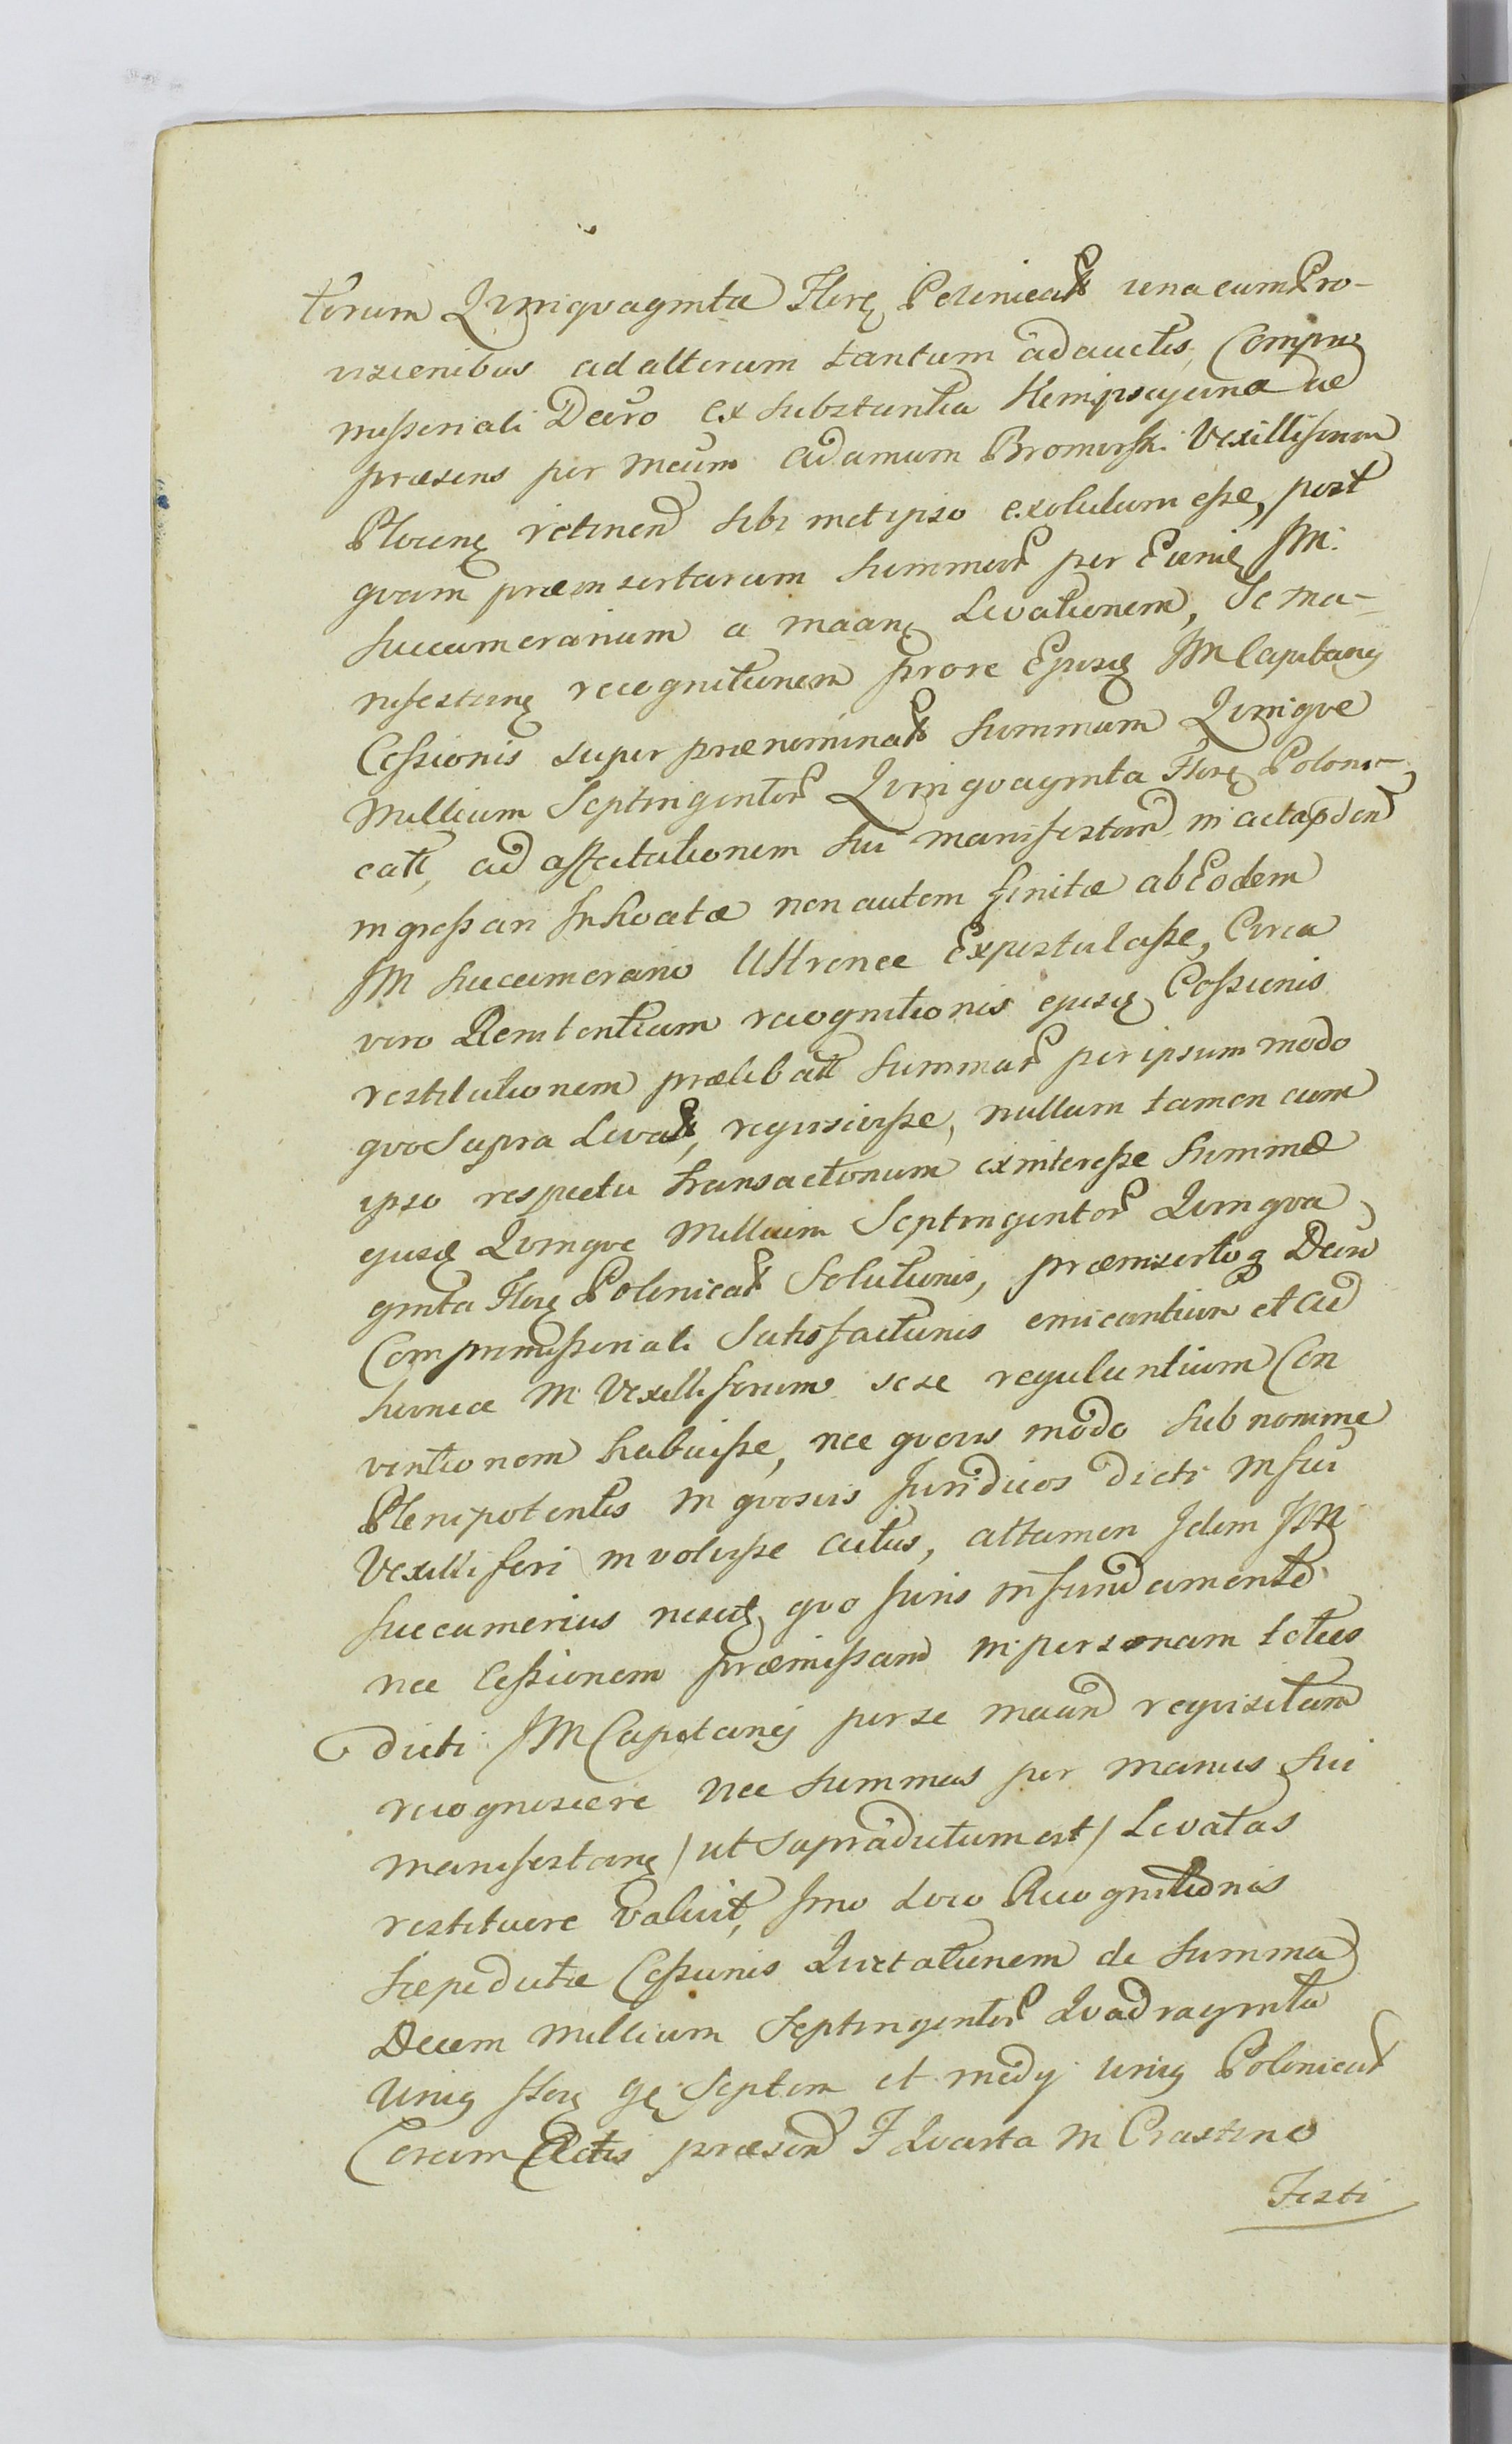 torum Qvinqvaginta Flore Polonical una cum Pro-
visionibus ad alterum tantum adauctis, Compro
missoriali Decro ex substantia Kempisciana ac
præsens per Meum Adamum Bromirski Vexilliferum
Plocens retinend sibi metipso exolutum esse, post
qvam præinsertarum Summar per Eund JM
Succamerarium a maans Levationem, Se ma-
nifestans recognitionem prore Ejusd JM Capitanej
Cessionis super prænominat Summam Qvinqve
Millium Septingentor Qvinqvaginta Flor Poloni-
call, ad affectationem sui manifestand in acta
ingressan Inhoatæ non autem finitæ ab Eodem
JM Succamerario Ultronee Expostulasse, Circa
vero Renitentiam recognitionis ejusd Cessionis
restitutionem prælibatt Summar per ipsum modo
qvo Supra Levat, reqvisivisse, nullum tamen cum
ipso respectu transactionum ex interesse Summæ
ejusd Qvinqve Millium Septingentor Qvinqva
ginta Flor Polonicar Solutionis, præinsertoq Decro
Compromissoriali Satisfactionis emicantium et ad
hunce M Vexilliferum sese regulantium Con
ventionem habuisse, nec qvovis modo sub nomine
Plenipotentis in qvosvis Juridicos dicti M sui
Vexilliferi involvisse actus, attamen Idem JM
Succamerius nescit qvo Juris in fundamento
nec Cessionem præmissam in personam toties
dicti JM Capitanej per se maand reqvisitam
recognoscere nec Summas per manus sui
manifestans / ut supradictum est / Levatas
restituere valuit, Imo Loco Recognitionis
sæpedictæ Cessionis Qvietationem de Summa
Decem Millium Septingentor Qvadraginta
Unius Flor gr Septem et medij unius Polonical
Coram Actis præsen F Qvarta in Crastino
Festi